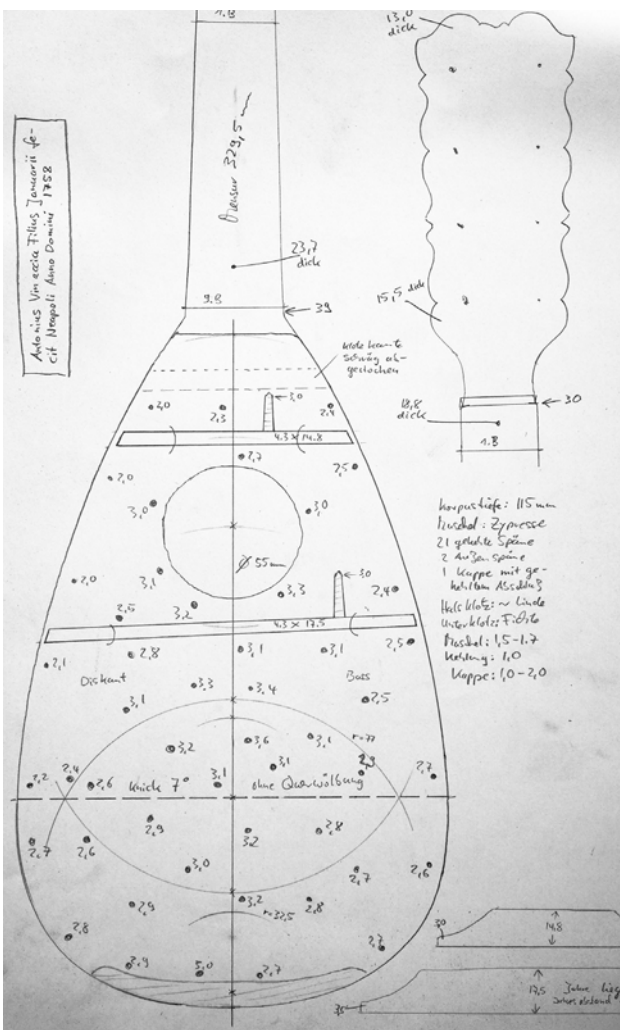 1.8
13,0
dick
Antonius Vinaccia Filius Januarii fe-
cit Neapoli Anno Domini 1758
Mensur 329,5 mm
23,7
dick
9.8
39
15,5 dick
30
18,8
dick
1.8
abgestochen
2,0
2,3
3,0
2,4
4.3 x 14.8
2,7
2,0
2,5
3,0
3,0
ø 55mm
2,0
3,1
3,3
3,0
2,4
2,5
3,2
4.3 x 17.5
2,5
2,1
2,8
3,1
3,1
Diskant
Bass
3,3
3,4
3,1
2,5
3,2
3,6
3,1
r=77
3,1
2,9
2,2
2,4
2,6
3,1
2,7
Knick 7° ohne Querwölbung
2,9
2,8
2,7
2,6
32
3,0
2,7
2,6
2,9
3,2
2,8
r=32,5
2,8
2,7
2,9
3,0
2,7
Korpustiefe: 115 mm
Muschel: Zypresse
21 gekehlte Späne
2 Außenspäne
1 Kappe mit ge-
kehltem Abschluß
Halsklotz: ~ Linde
Unterklotz: Fichte
Muschel: 1,5-1.7
Kehlung: 1,0
Kappe: 1,0-2,0
30
14.8
17,5
35